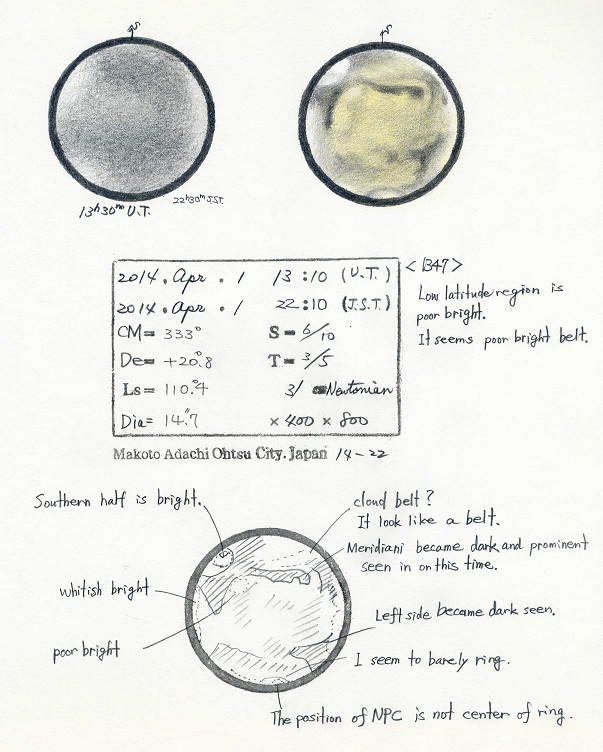 S
S
13h30m U.T.
22h30m J.S.T.
2014. Apr. 1 13:10 (U.T.)
2014. Apr. 1 22:10 (J.S.T.)
CM= 333°
S= 6/10
De= +20.°8
T= 3/5
Ls= 110.°4
31 cm Newtonian
Dia= 14."7
×400 ×800
Makoto Adachi Ohtsu City. Japan 14-22
<B47>
Low latitude region is
poor bright.
It seems poor bright belt.
Southern half is bright.
whitish bright
poor bright
cloud belt?
It look like a belt.
Meridiani became dark and prominent
seen in on this time.
Left side became dark seen.
I seem to barely ring.
The position of NPC is not center of ring.